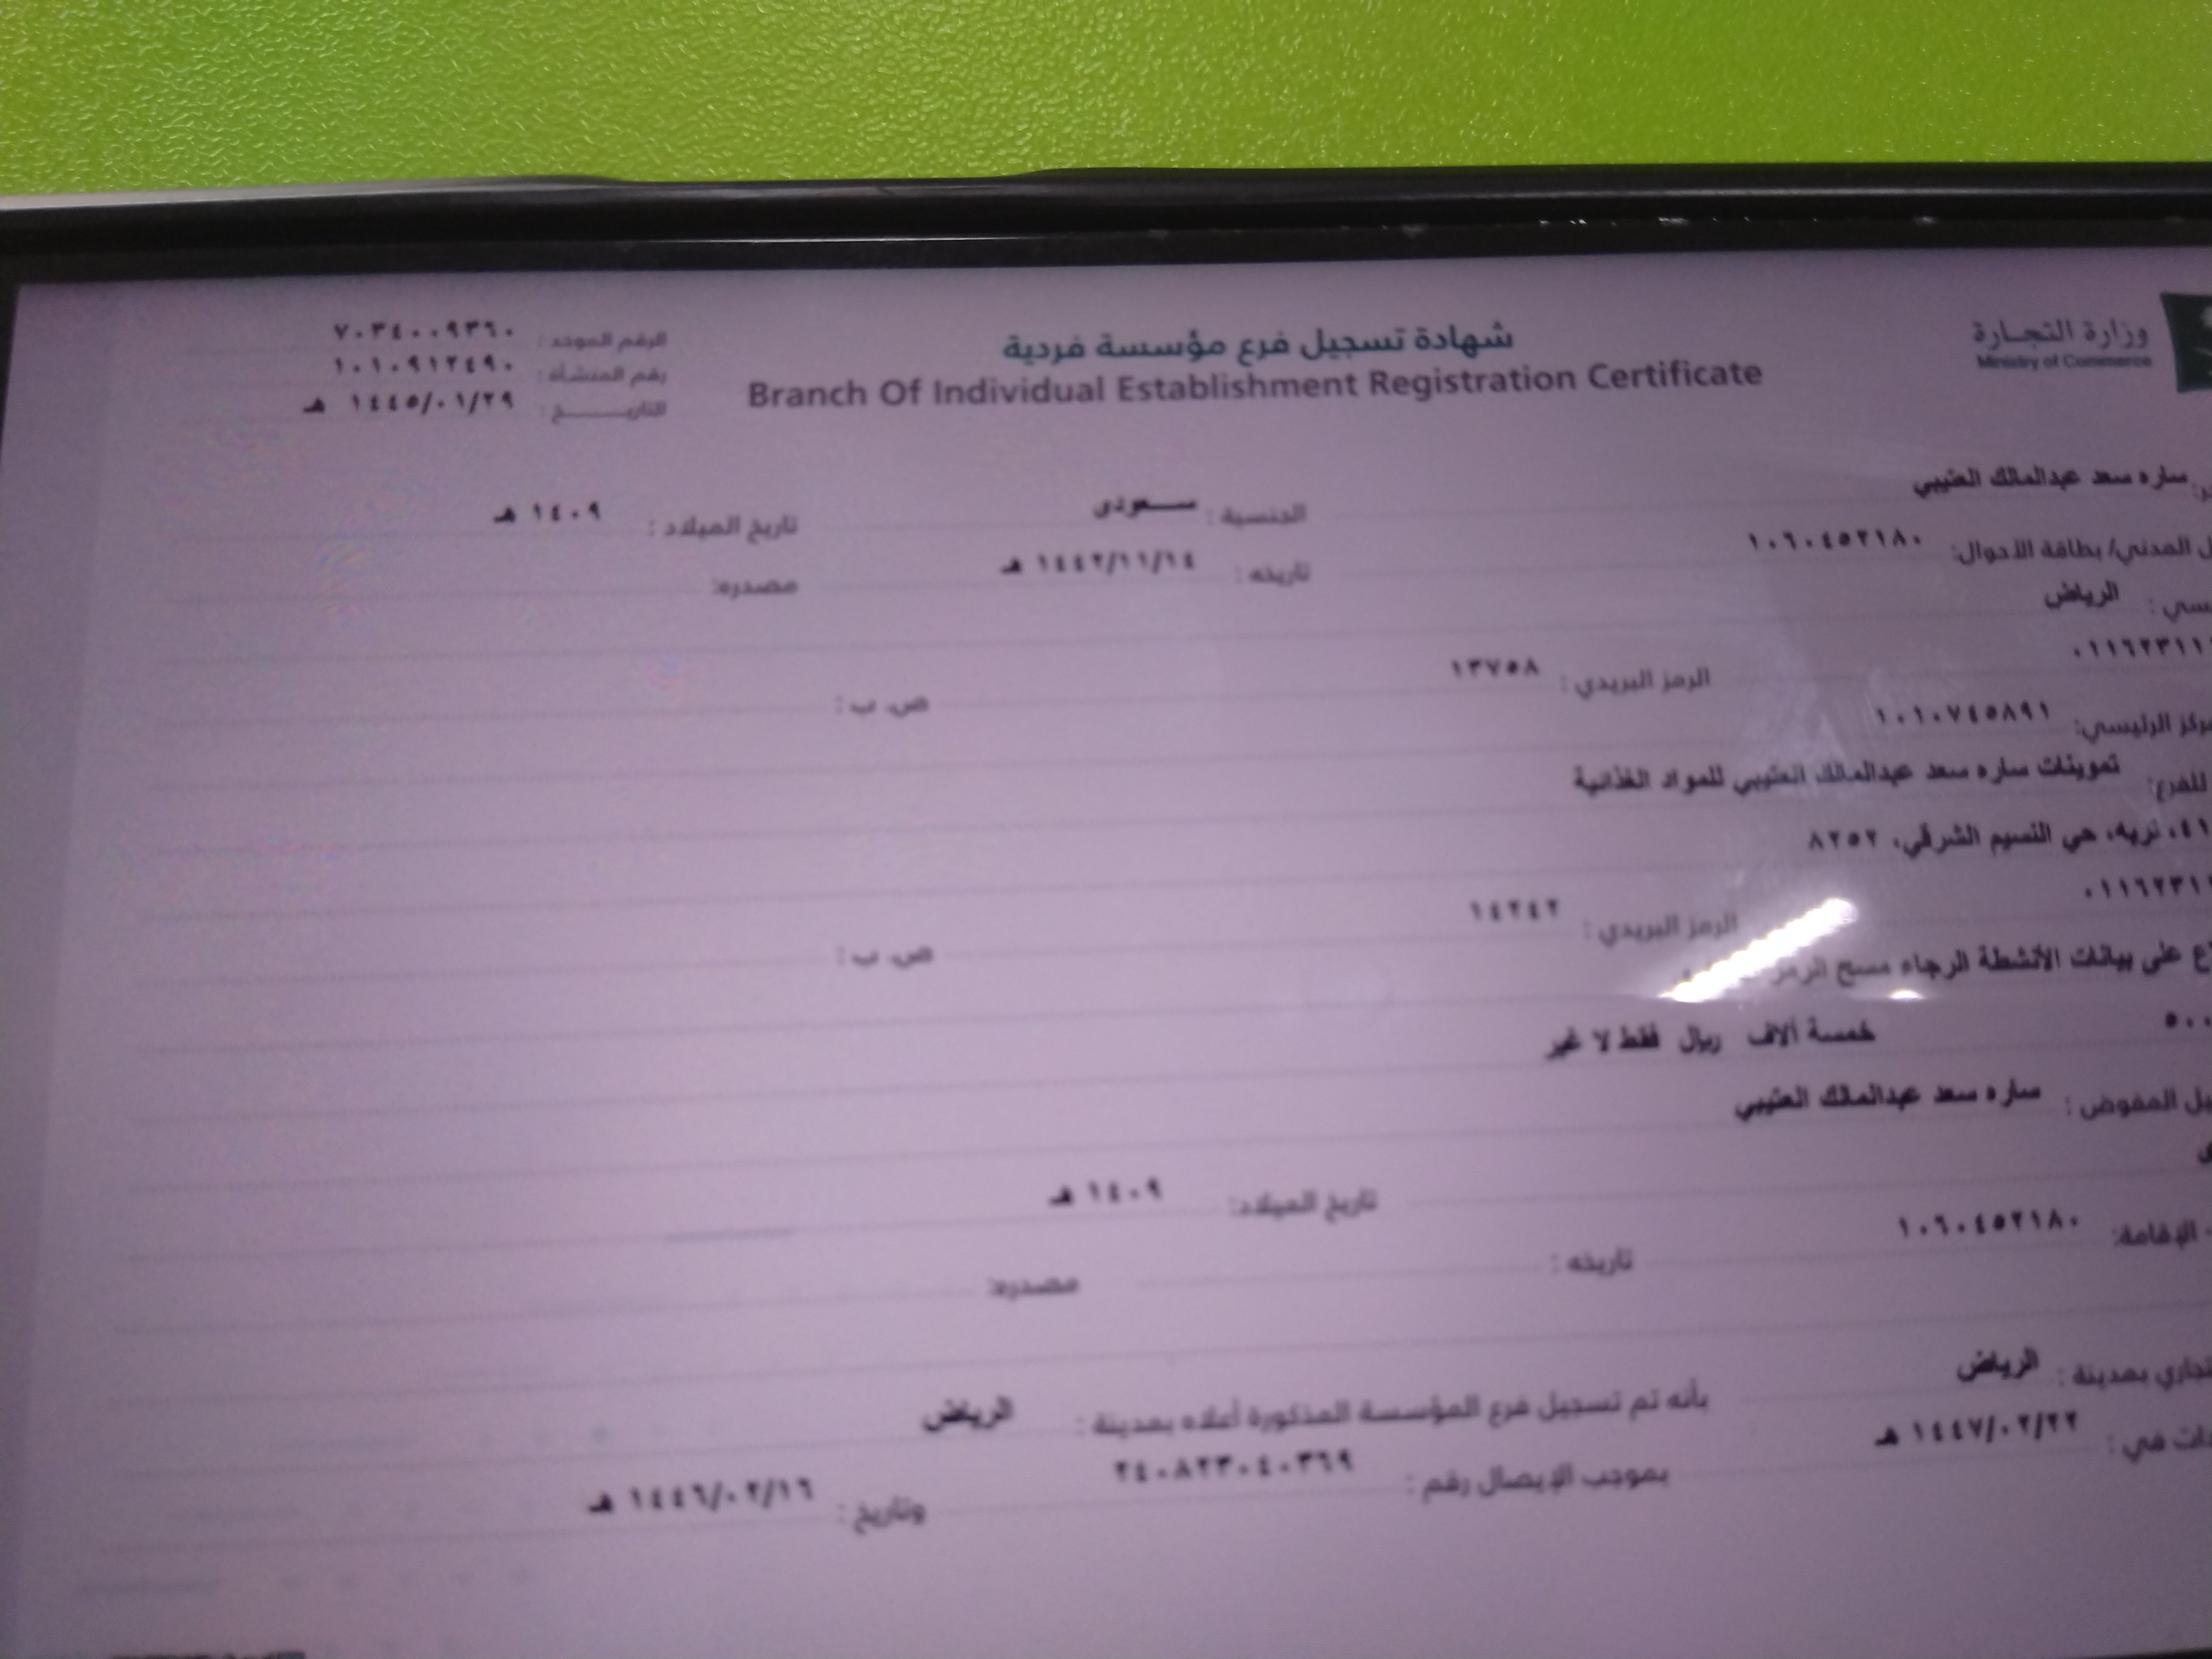 وزارة التجارة
Ministry of Commerce
شهادة تسجيل فرع مؤسسة فردية
Branch Of Individual Establishment Registration Certificate
الرقم الموحد : ٧٠٣٤٠٠٩٣٦٠
رقم المنشأة : ١٠١٠٩١٢٤٩٠
التاريخ : ١٤٤٥/٠١/٢٩ هـ
ساره سعد عبدالمالك العتيبي الجنسية : سعودى تاريخ الميلاد : ١٤٠٩ هـ
المدني/ بطاقة الأحوال: ١٠٦٠٤٥٢١٨٠ تاريخه : ١٤٤٢/١١/١٤ هـ مصدره:
الرياض
الرمز البريدي : ١٣٧٥٨ ص. ب :
الرئيسي: ١٠١٠٧٤٥٨٩١
للفرع: تموينات ساره سعد عبدالمالك العتيبي للمواد الغذائية
تربه، حي النسيم الشرقي، ٨٢٥٢
الرمز البريدي : ١٤٢٤٢ ص. ب :
على بيانات الأنشطة الرجاء مسح الرمز
خمسة آلاف ريال فقط لا غير
المفوض : ساره سعد عبدالمالك العتيبي
تاريخ الميلاد: ١٤٠٩ هـ
الإقامة: ١٠٦٠٤٥٢١٨٠ تاريخه : مصدره:
بمدينة : الرياض بأنه تم تسجيل فرع المؤسسة المذكورة أعلاه بمدينة : الرياض
في : ١٤٤٧/٠٢/٢٢ هـ بموجب الإيصال رقم : ٢٤٠٨٢٣٠٤٠٣٦٩ وتاريخ : ١٤٤٦/٠٢/١٦ هـ